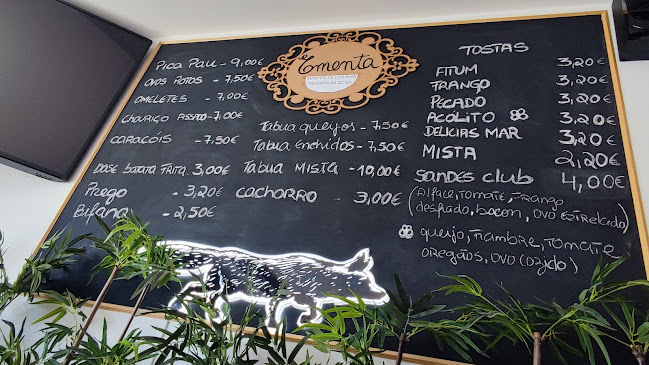 Ementa
Pica Pau - 9,00€
Ovos Rotos - 7,50€
Omeletes - 7,00€
Chouriço Assado - 7,00€
Caracóis - 7,50€
Dose batata frita 3,00€
Prego - 3,20€
Bifana - 2,50€
Tabua queijos - 7,50€
Tabua enchidos - 7,50€
Tabua Mista - 10,00€
Cachorro - 3,00€
TOSTAS
FITUM 3,20€
FRANGO 3,20€
PECADO 3,20€
ACOLITO 3,20€
DELICIAS MAR 3,20€
MISTA 2,20€
SANDES CLUB 4,00€
(Alface, Tomate, Frango
desfiado, bacon, ovo estrelado)
queijo, fiambre, tomate
oregãos, ovo (cozido)